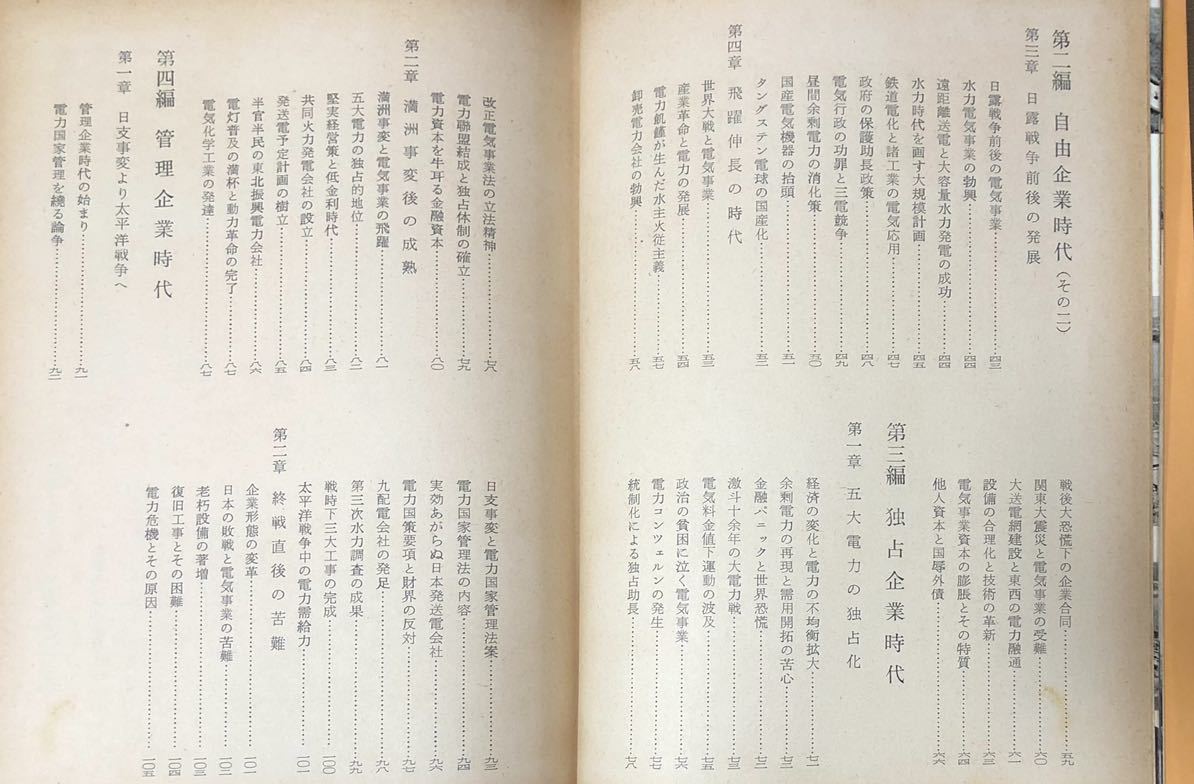 第二編 自由企業時代（その二）
第三章 日露戦争前後の発展
日露戦争前後の電気事業…………四三
水力電気事業の勃興…………四四
遠距離送電と大容量水力発電の成功…………四四
水力時代を画す大規模計画…………四五
鉄道電化と諸工業の電気応用…………四七
政府の保護助長政策…………四八
電気行政の功罪と三電競争…………四九
昼間余剰電力の消化策…………五〇
国産電気機器の抬頭…………五一
タングステン電球の国産化…………五二
第四章 飛躍伸長の時代
世界大戦と電気事業…………五三
産業革命と電力の発展…………五四
電力飢饉が生んだ「水主火従主義」…………五七
卸売電力会社の勃興…………五八
戦後大恐慌下の企業合同…………五九
関東大震災と電気事業の受難…………六〇
大送電網建設と東西の電力融通…………六一
設備の合理化と技術の革新…………六三
電気事業資本の膨脹とその特質…………六四
他人資本と国辱外債…………六六
第三編 独占企業時代
第一章 五大電力の独占化
経済の変化と電力の不均衡拡大…………七一
余剰電力の再現と需用開拓の苦心…………七二
金融パニックと世界恐慌…………七三
激斗十余年の大電力戦…………七四
電気料金値下運動の波及…………七五
政治の貧困に泣く電気事業…………七六
電力コンツェルンの発生…………七七
統制化による独占助長…………七八
改正電気事業法の立法精神…………七八
電力聯盟結成と独占体制の確立…………七九
電力資本を牛耳る金融資本…………八〇
第二章 満洲事変後の成熟
満洲事変と電気事業の飛躍…………八一
五大電力の独占的地位…………八二
堅実経営策と低金利時代…………八三
共同火力発電会社の設立…………八四
発送電予定計画の樹立…………八五
半官半民の東北振興電力会社…………八六
電灯普及の満杯と動力革命の完了…………八七
電気化学工業の発達…………八七
第四編 管理企業時代
第一章 日支事変より太平洋戦争へ
管理企業時代の始まり…………九一
電力国家管理を繞る論争…………九二
日支事変と電力国家管理法案…………九三
電力国家管理法の内容…………九四
実効あがらぬ日本発送電会社…………九六
電力国策要項と財界の反対…………九七
九配電会社の発足…………九八
第三次水力調査の成果…………九九
戦時下三大工事の完成…………一〇〇
太平洋戦争中の電力需給力…………一〇一
第二章 終戦直後の苦難
企業形態の変革…………一〇一
日本の敗戦と電気事業の苦難…………一〇二
老朽設備の著増…………一〇三
復旧工事とその困難…………一〇四
電力危機とその原因…………一〇五